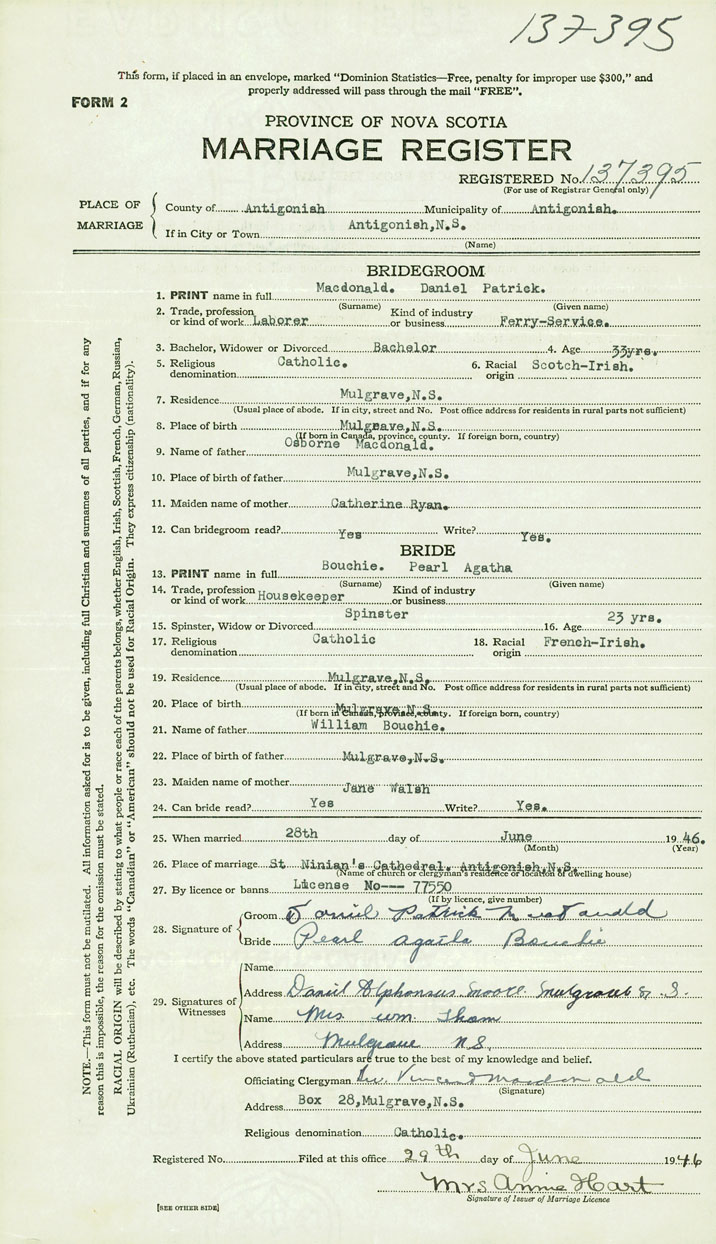 137395
This form, if placed in an envelope, marked "Dominion Statistics—Free, penalty for improper use $300," and
properly addressed will pass through the mail "FREE".
FORM 2
PROVINCE OF NOVA SCOTIA
MARRIAGE REGISTER
REGISTERED No. 137395
(For use of Registrar General only)
PLACE OF MARRIAGE
County of Antigonish Municipality of Antigonish.
If in City or Town Antigonish, N.S.
(Name)
BRIDEGROOM
1. PRINT name in full Macdonald. Daniel Patrick.
(Surname) (Given name)
2. Trade, profession or kind of work Laborer Kind of industry or business Ferry-Service.
3. Bachelor, Widower or Divorced Bachelor 4. Age 33yrs.
5. Religious denomination Catholic. 6. Racial origin Scotch-Irish.
7. Residence Mulgrave, N.S.
(Usual place of abode. If in city, street and No. Post office address for residents in rural parts not sufficient)
8. Place of birth Mulgrave, N.S.
(If born in Canada, province, county. If foreign born, country)
9. Name of father Osborne Macdonald.
10. Place of birth of father Mulgrave, N.S.
11. Maiden name of mother Catherine Ryan.
12. Can bridegroom read? Yes Write? Yes.
BRIDE
13. PRINT name in full Bouchie. Pearl Agatha
(Surname) (Given name)
14. Trade, profession or kind of work Housekeeper Kind of industry or business
15. Spinster, Widow or Divorced Spinster 16. Age 23 yrs.
17. Religious denomination Catholic 18. Racial origin French-Irish.
19. Residence Mulgrave, N.S.
(Usual place of abode. If in city, street and No. Post office address for residents in rural parts not sufficient)
20. Place of birth Mulgrave, N.S.
(If born in Canada, province, county. If foreign born, country)
21. Name of father William Bouchie.
22. Place of birth of father Mulgrave, N.S.
23. Maiden name of mother Jane Walsh
24. Can bride read? Yes Write? Yes.
25. When married 28th day of June 1946.
(Month) (Year)
26. Place of marriage St Ninian's Cathedral. Antigonish, N.S.
(Name of church or clergyman's residence or location of dwelling house)
27. By licence or banns License No--- 77550
(If by licence, give number)
28. Signature of
Groom Daniel Patrick Macdonald
Bride Pearl Agatha Bouchie
29. Signatures of Witnesses
Name
Address Daniel Alphonsus Moore Mulgrave N.S.
Name Mrs Wm. Tham
Address Mulgrave N.S.
I certify the above stated particulars are true to the best of my knowledge and belief.
Officiating Clergyman Vincent Macdonald
(Signature)
Address Box 28, Mulgrave, N.S.
Religious denomination Catholic.
Registered No. Filed at this office 29th day of June 1946
Mrs Annie Hart
Signature of Issuer of Marriage Licence
[SEE OTHER SIDE]
NOTE.—This form must not be mutilated. All information asked for is to be given, including full Christian and surnames of all parties, and if for any
reason this is impossible, the reason for the omission must be stated.
RACIAL ORIGIN will be described by stating to what people or race each of the parents belongs, whether English, Irish, Scottish, French, German, Russian,
Ukrainian (Ruthenian), etc. The words "Canadian" or "American" should not be used for Racial Origin. They express citizenship (nationality).